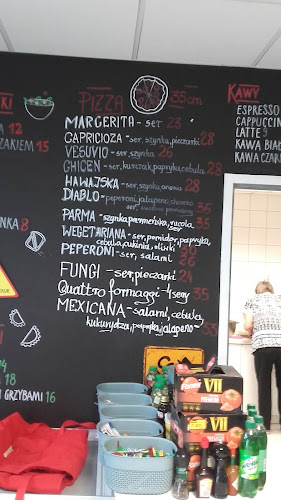 PIZZA 35cm
MARGERITA - ser 23
CAPRICIOZA - ser, szynka, pieczarki 28
VESUVIO - ser, szynka 26
CHICEN - ser, kurczak, papryka, cebula 28
HAWAJSKA - ser, szynka, ananas 28
DIABLO - peperoni, jalapeno, chorizo
ser 35
PARMA - szynka parmeńska, rucola
ser 35
WEGETARIANA - ser, pomidor, papryka,
cebula, cukinia, oliwki 26
PEPERONI - ser, salami 26
FUNGI - ser, pieczarki 24
Quattro formaggi - 4 ser 35
MEXICANA - salami, cebula,
kukurydza, papryka, jalapeno 33
KAWY
ESPRESSO
CAPPUCCIN
LATTE 9
KAWA BIAŁ
KAWA CZAR
KI
12
ZAKIEM 15
NKA 8
14
16
I GRZYBAMI 16
VII
VII